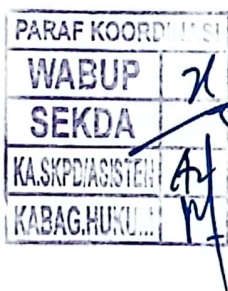 PARAF KOORDINASI
WABUP
SEKDA
KA.SKPD/ASISTEN
KABAG.HUKUM